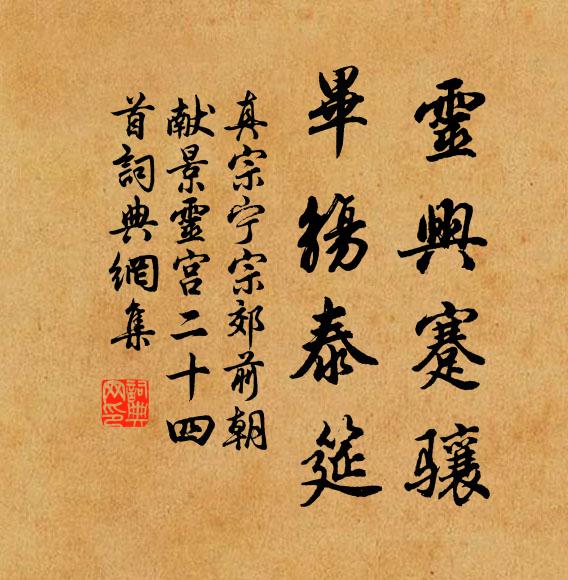 靈興蹇驤
畢觴泰筵
真宗宁宗郊前朝
献景靈宮二十四
首詞典網集
詞典网印